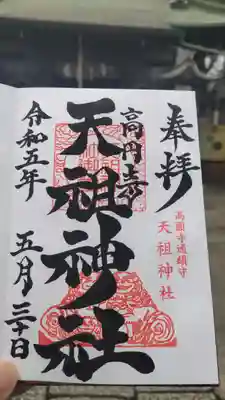 奉拝
高円寺
天祖神社
高圓寺邨鎮守
天祖神社
令和五年
五月三十日